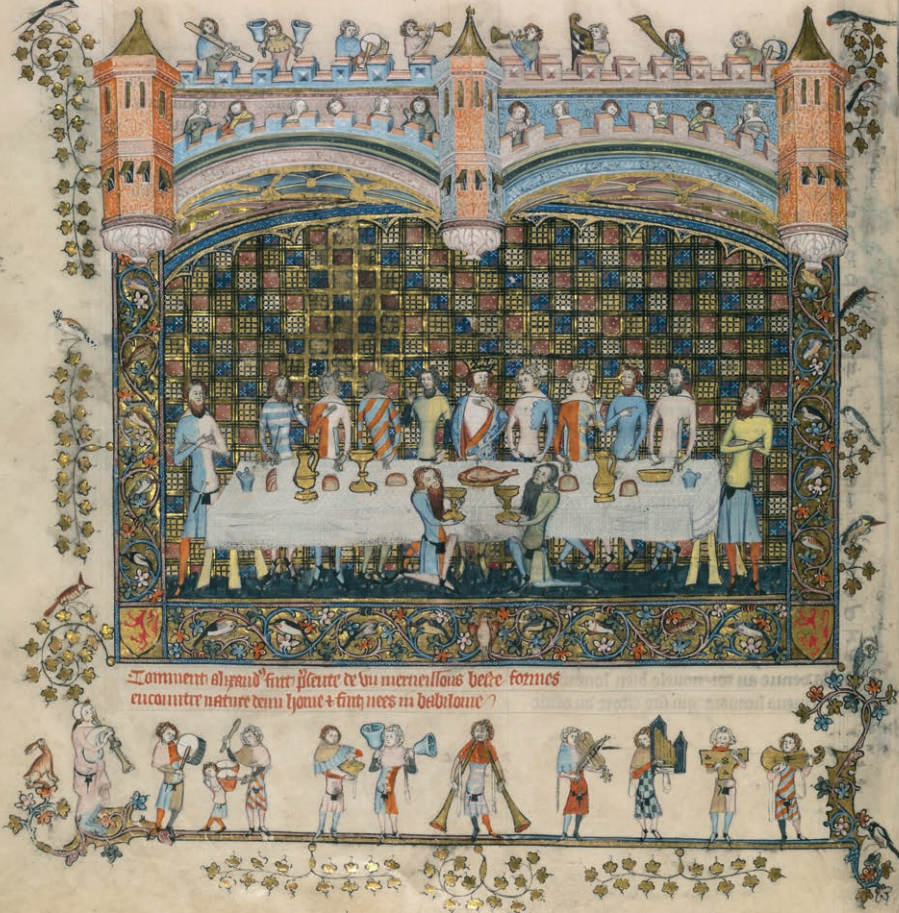 Comment alixandr fuit psente de vn merueillous beste formes
encountre nature demi home ⁊ fuit nees in babiloine